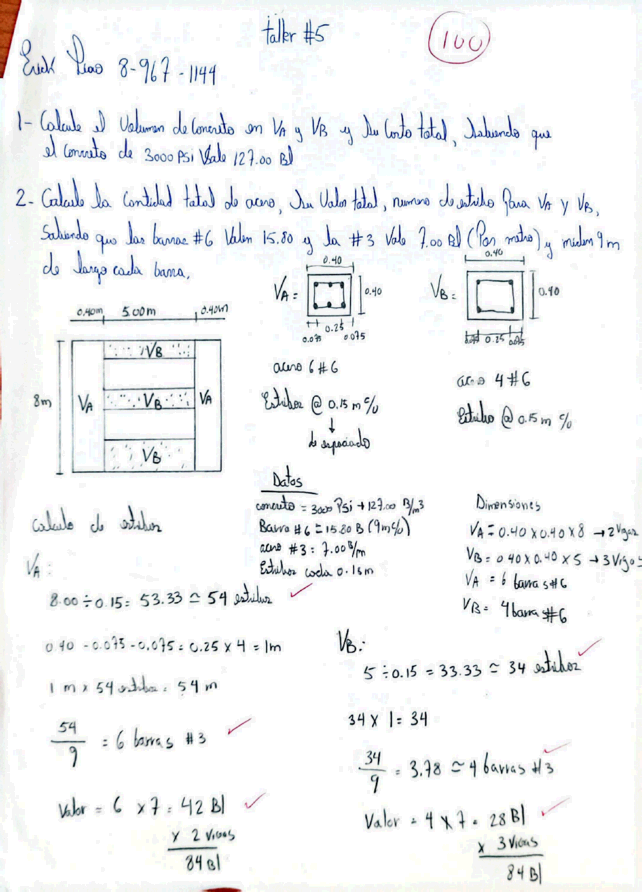 taller #5
100
Erick Pino 8-967-1144
1- Calcule el Volumen de Concreto en VA y VB y su Costo total, Sabiendo que
el Concreto de 3000 PSI Vale 127.00 Bl
2- Calcule la Cantidad total de acero, su Valor total, numero de estribo para VA y VB,
Sabiendo que las barras #6 Valen 15.80 y la #3 Vale 7.00 Bl (Por metro) y miden 9 m
de largo cada barra.
0.40m 5.00m 0.40m
8m
VA
VB
VB
VB
VA
VA =
0.40
0.40
0.25
0.075 0.075
acero 6 #6
Estribos @ 0.15 m c/u
de espaciado
VB =
0.40
0.40
0.075 0.25 0.075
acero 4 #6
Estribo @ 0.15 m c/u
Datos
concreto = 3000 PSI → 127.00 B/m3
Barra #6 = 15.80 B (9m c/u)
acero #3 = 7.00 B/m
Estribos cada 0.15m
Dimensiones
VA = 0.40 x 0.40 x 8 → 2 Vigas
VB = 0.40 x 0.40 x 5 → 3 Vigas
VA = 6 barras #6
VB = 4 barra #6
Calculo de estribos
VA:
8.00 ÷ 0.15 = 53.33 ≃ 54 estribos
0.40 - 0.075 - 0.075 = 0.25 x 4 = 1m
1 m x 54 estribos = 54 m
54/9 = 6 barras #3
Valor = 6 x 7 = 42 Bl
x 2 Vigas
84 Bl
VB:
5 ÷ 0.15 = 33.33 ≃ 34 estribos
34 x 1 = 34
34/9 = 3.78 ≃ 4 barras #3
Valor = 4 x 7 = 28 Bl
x 3 Vigas
84 Bl